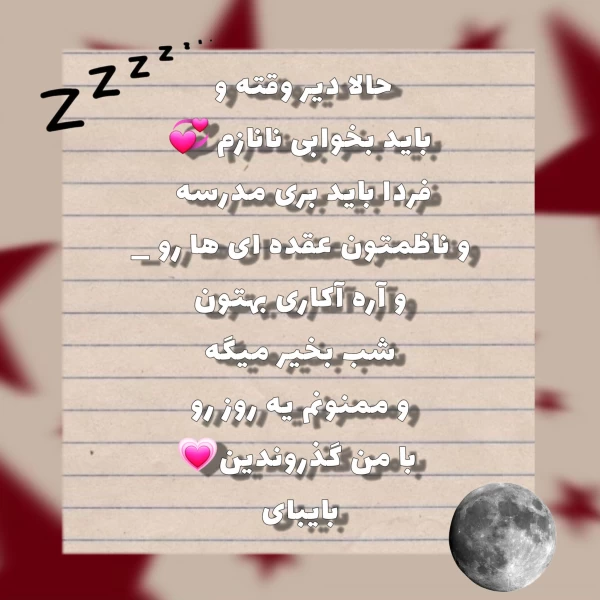 zzzzz...
حالا دیر وقته و
باید بخوابی نانازم💞
فردا باید بری مدرسه
و ناظمتون عقده ای ها رو _
و آره آکاری بهتون
شب بخیر میگه
و ممنونم یه روز رو
با من گذروندین💗
بایبای